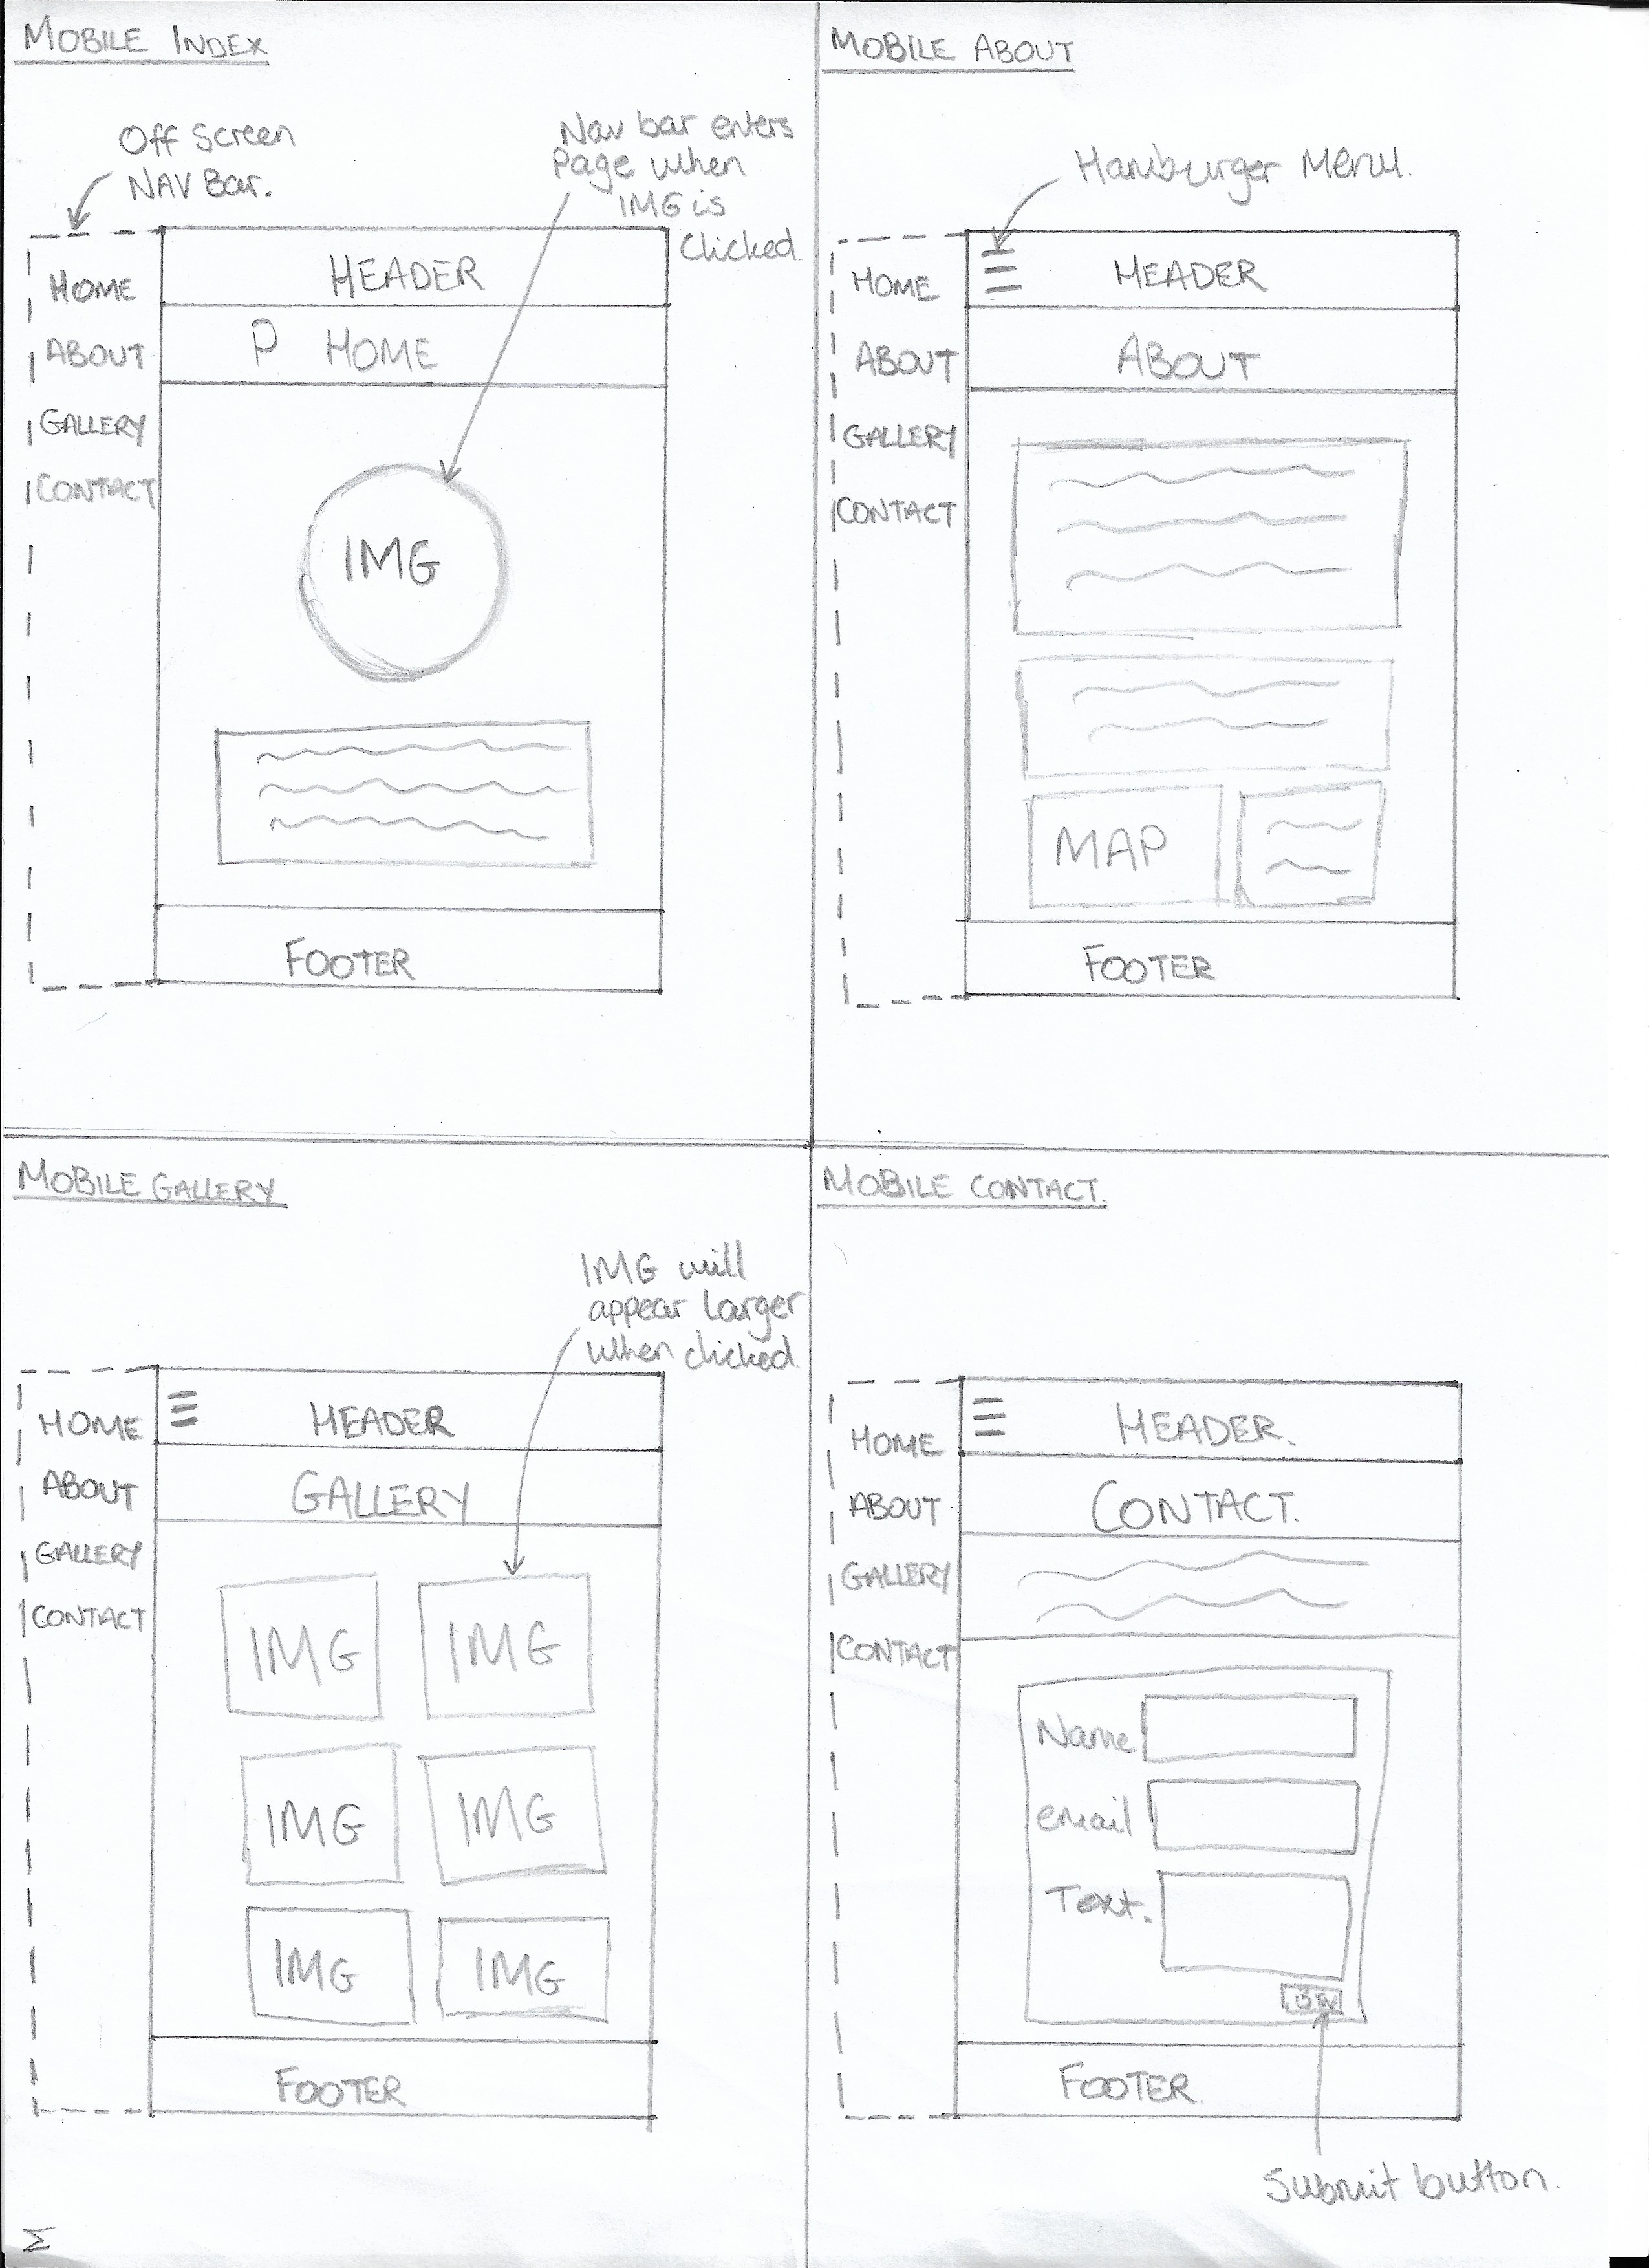 MOBILE INDEX
Off Screen
NAV Bar.
Nav bar enters
Page when
IMG is
clicked.
HOME
ABOUT
GALLERY
CONTACT
HEADER
P HOME
IMG
FOOTER
MOBILE ABOUT
Hamburger Menu.
HOME
ABOUT
GALLERY
CONTACT
HEADER
ABOUT
MAP
FOOTER
MOBILE GALLERY
IMG will
appear larger
when clicked
HOME
ABOUT
GALLERY
CONTACT
HEADER
GALLERY
IMG IMG
IMG IMG
IMG IMG
FOOTER
MOBILE CONTACT.
HOME
ABOUT
GALLERY
CONTACT
HEADER.
CONTACT.
Name
email
Text.
FOOTER
Submit button.